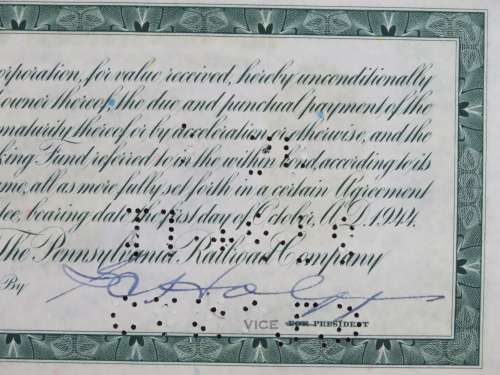 corporation, for value received, hereby unconditionally
owner thereof, the due and punctual payment of the
maturity thereof or by acceleration or otherwise, and the
king Fund referred to in the within bond, according to its
me, all as more fully set forth in a certain Agreement
tee, bearing date the first day of October, A.D. 1944.
The Pennsylvania Railroad Company
By
VICE FOR PRESIDENT